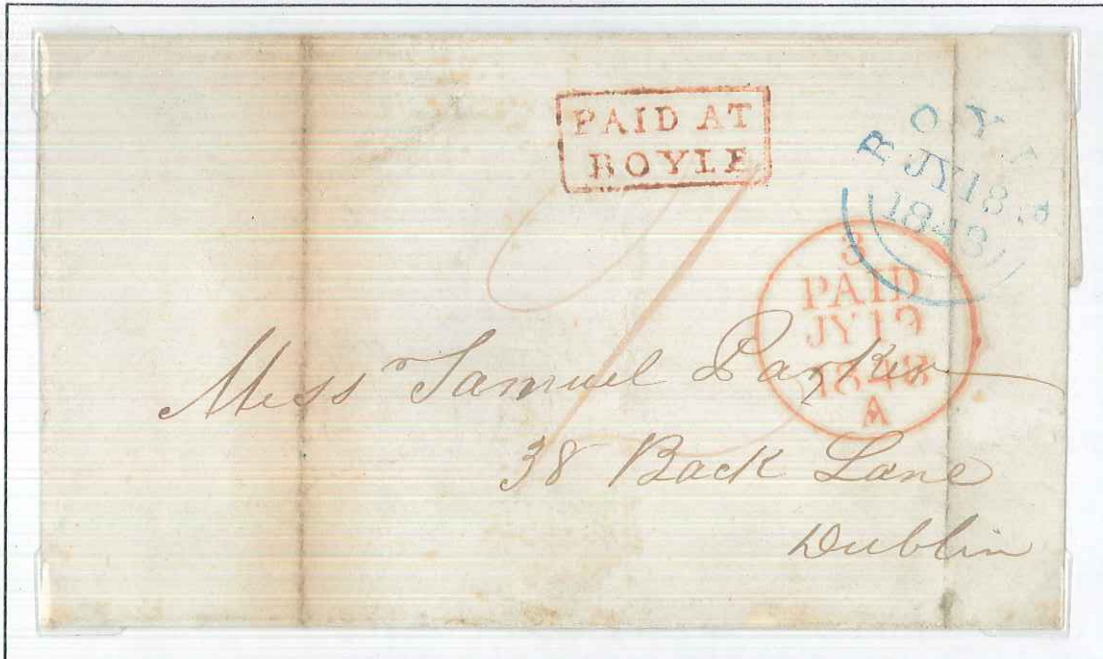 PAID AT
BOYLE
BOYLE
JY 18
1848
3
PAID
JY 19
1848
A
Messr Samuel Parker
38 Back Lane
Dublin